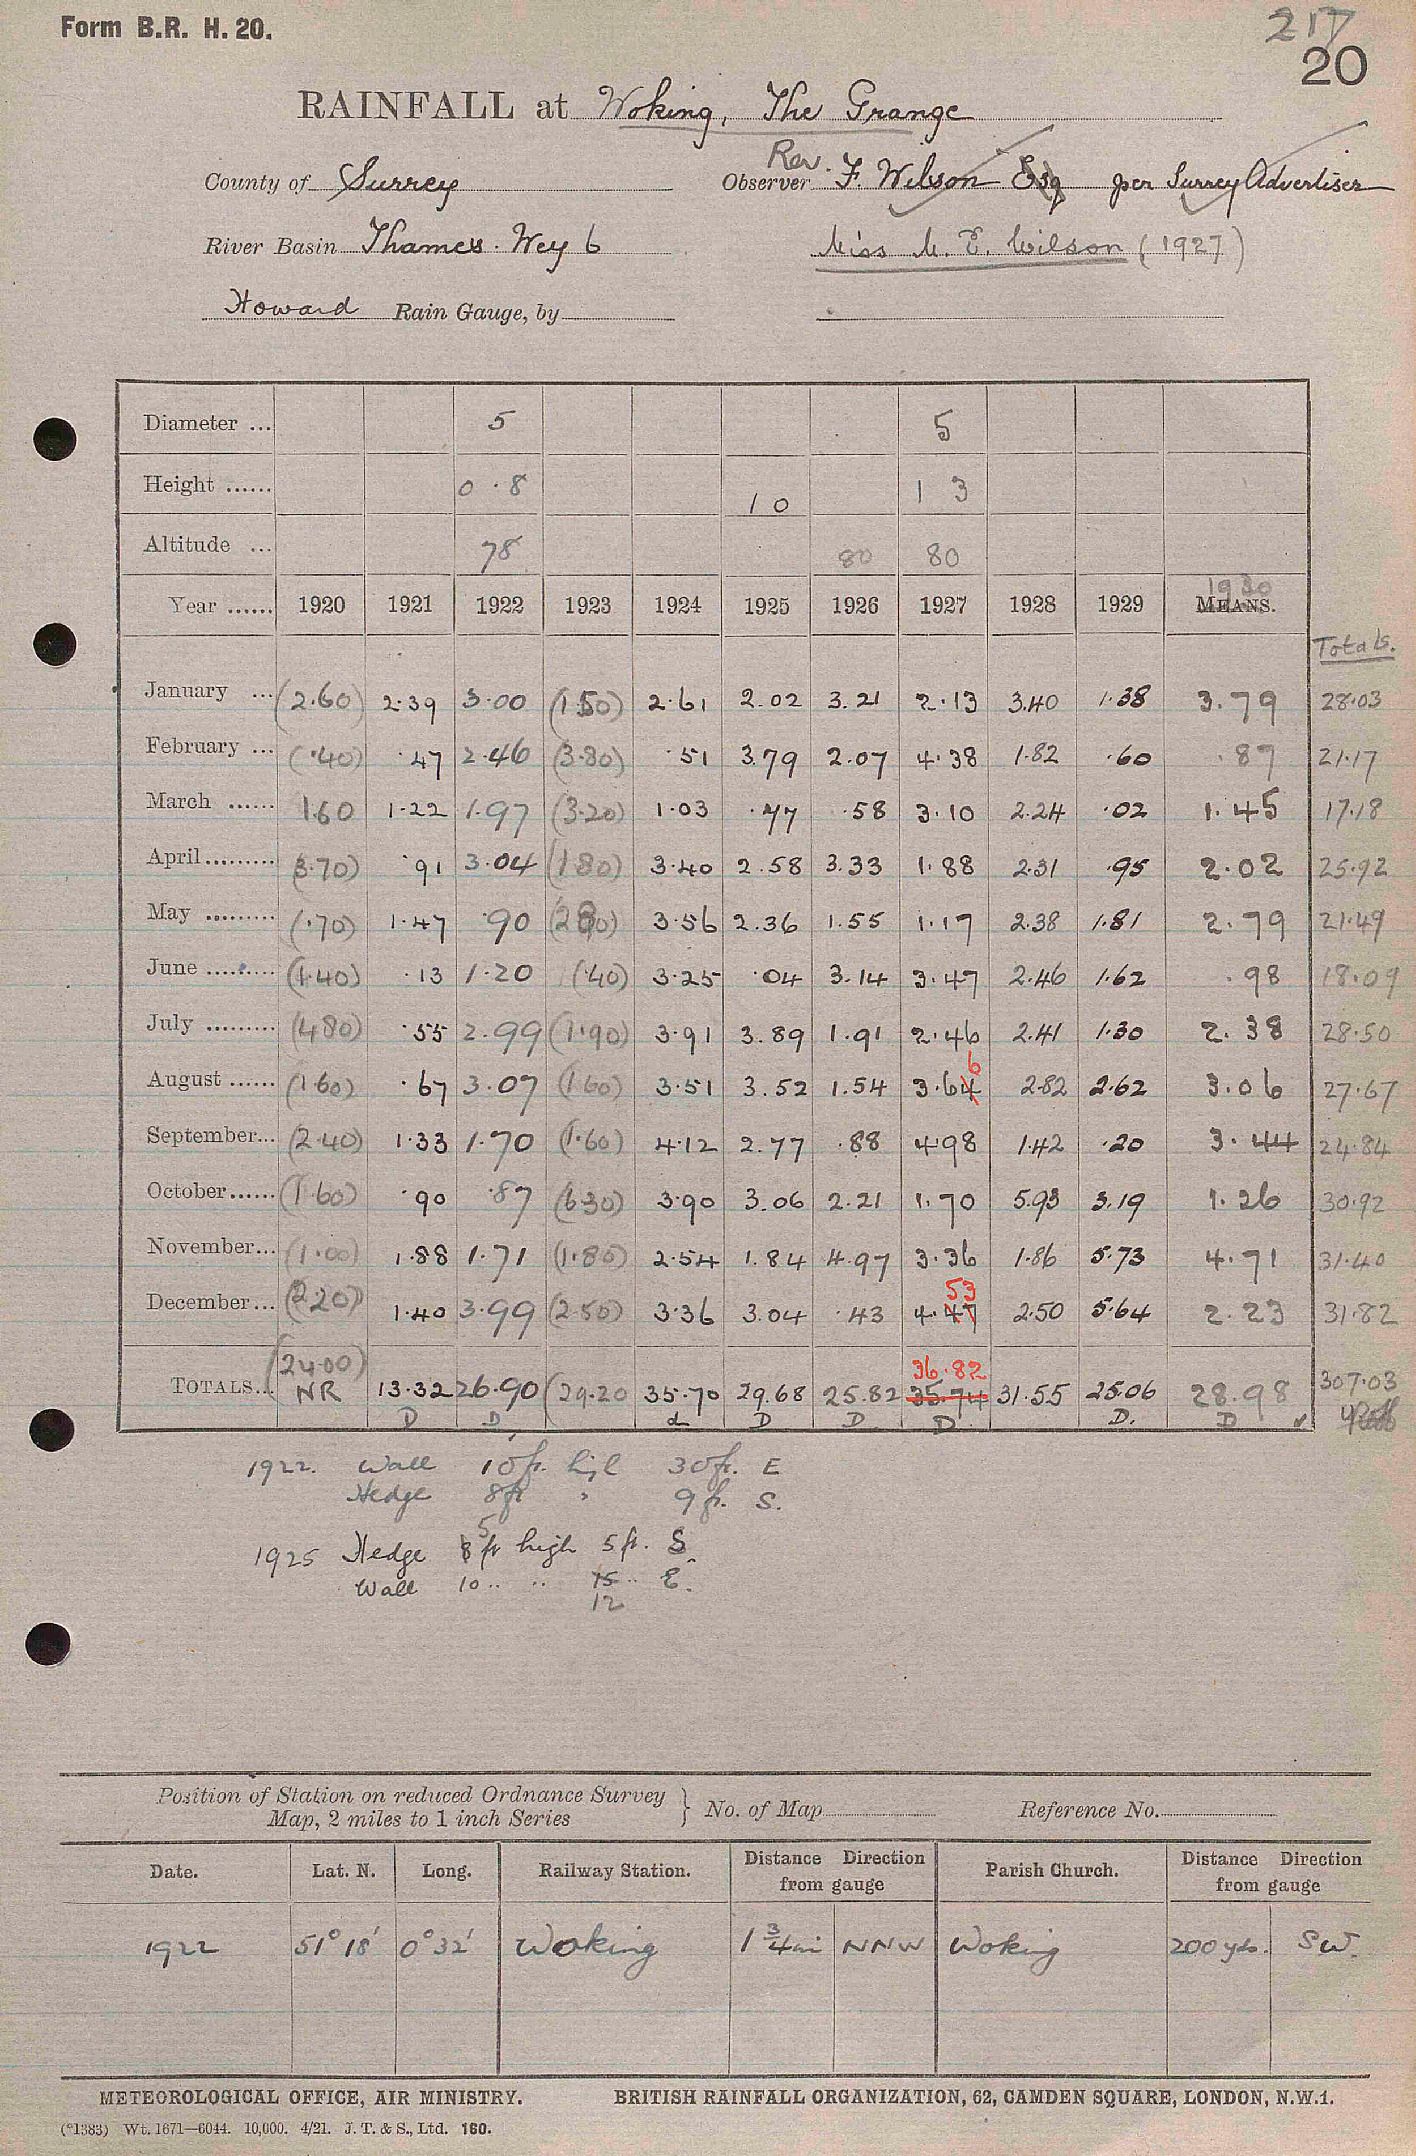 Form B.R. H. 20.
217
20
RAINFALL at Woking, The Grange
County of Surrey Observer Rev. F. Wilson Esq per Surrey Advertiser
River Basin Thames. Wey 6 Miss M. E. Wilson (1927)
Howard Rain Gauge, by
Diameter ... 5 5
Height ...... 0.8 1 0 1 3
Altitude ... 78 80 80
Year ...... 1920 1921 1922 1923 1924 1925 1926 1927 1928 1929 MEANS. 1930
Totals.
January ... (2.60) 2.39 3.00 (1.50) 2.61 2.02 3.21 2.13 3.40 1.38 3.79 28.03
February ... (.40) .47 2.46 (3.80) .51 3.79 2.07 4.38 1.82 .60 .87 21.17
March ...... 1.60 1.22 1.97 (3.20) 1.03 .77 .58 3.10 2.24 .02 1.45 17.18
April ......... (3.70) .91 3.04 (1.80) 3.40 2.58 3.33 1.88 2.31 .95 2.02 25.92
May ......... (.70) 1.47 .90 3.56 2.36 1.55 1.17 2.38 1.81 2.79 21.49
June ......... (1.40) .13 1.20 (.40) 3.25 .04 3.14 3.47 2.46 1.62 .98 18.09
July ......... (4.80) .55 2.99 (1.90) 3.91 3.89 1.91 2.46 2.41 1.30 2.38 28.50
August ...... (1.60) .67 3.07 (1.60) 3.51 3.52 1.54 3.64 6 2.82 2.62 3.06 27.67
September... (2.40) 1.33 1.70 (1.60) 4.12 2.77 .88 4.98 1.42 .20 3.44 24.84
October...... (1.60) .90 .87 (6.30) 3.90 3.06 2.21 1.70 5.93 3.19 1.26 30.92
November... (1.00) 1.88 1.71 (1.80) 2.54 1.84 4.97 3.36 1.86 5.73 4.71 31.40
December... (2.20) 1.40 3.99 (2.50) 3.36 3.04 .43 4.47 53 2.50 5.64 2.23 31.82
(24.00) 36.82
TOTALS... NR 13.32 26.90 (29.20 35.70 29.68 25.82 35.74 31.55 25.06 28.98 307.03
D D d D D D D. D
1922. Wall 10ft. high 30ft. E
Hedge 8ft " 9ft. S.
1925 Hedge 8 5 ft high 5ft. S.
Wall 10 .. .. 15 .. E.
12
Position of Station on reduced Ordnance Survey
Map, 2 miles to 1 inch Series } No. of Map Reference No.
Date. Lat. N. Long. Railway Station. Distance Direction from gauge Parish Church. Distance Direction from gauge
1922 51° 18' 0° 32' Woking 1 3/4 mi NNW Woking 200 yds. SW.
METEOROLOGICAL OFFICE, AIR MINISTRY. BRITISH RAINFALL ORGANIZATION, 62, CAMDEN SQUARE, LONDON, N.W.1.
(*1383) Wt. 1671—6044. 10,000. 4/21. J. T. & S., Ltd. 160.